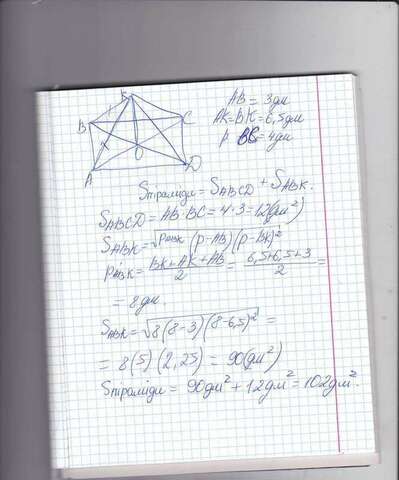 K
B
C
O
A
D
AB = 3дм
AK=BK=6,5дм
BC=4дм
Sпіраміди = SABCD + SABK.
SABCD = AB·BC = 4·3=12(дм²)
SABK=√PABK(p-AB)(p-BK)²
PABK = BK+AK+AB / 2 = 6,5+6,5+3 / 2 =
= 8дм
SABK=√8(8-3)(8-6,5)² =
= 8(5)(2,25) = 90(дм²)
Sпіраміди = 90дм²+12дм²=102дм².